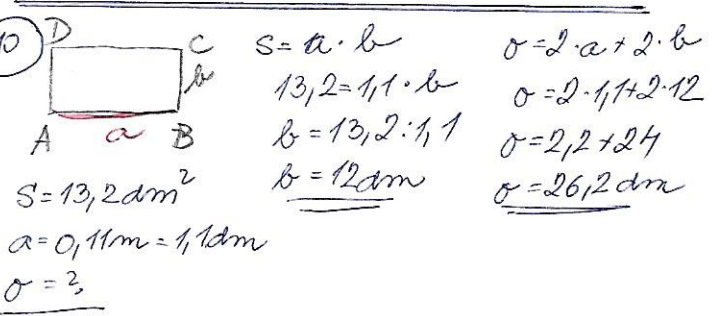 10
D
C
b
A
a
B
S = 13,2 dm²
a = 0,11m = 1,1dm
σ = ?
S = a · b
13,2 = 1,1 · b
b = 13,2 : 1,1
b = 12dm
σ = 2·a + 2·b
σ = 2·1,1+2·12
σ = 2,2 + 24
σ = 26,2 dm